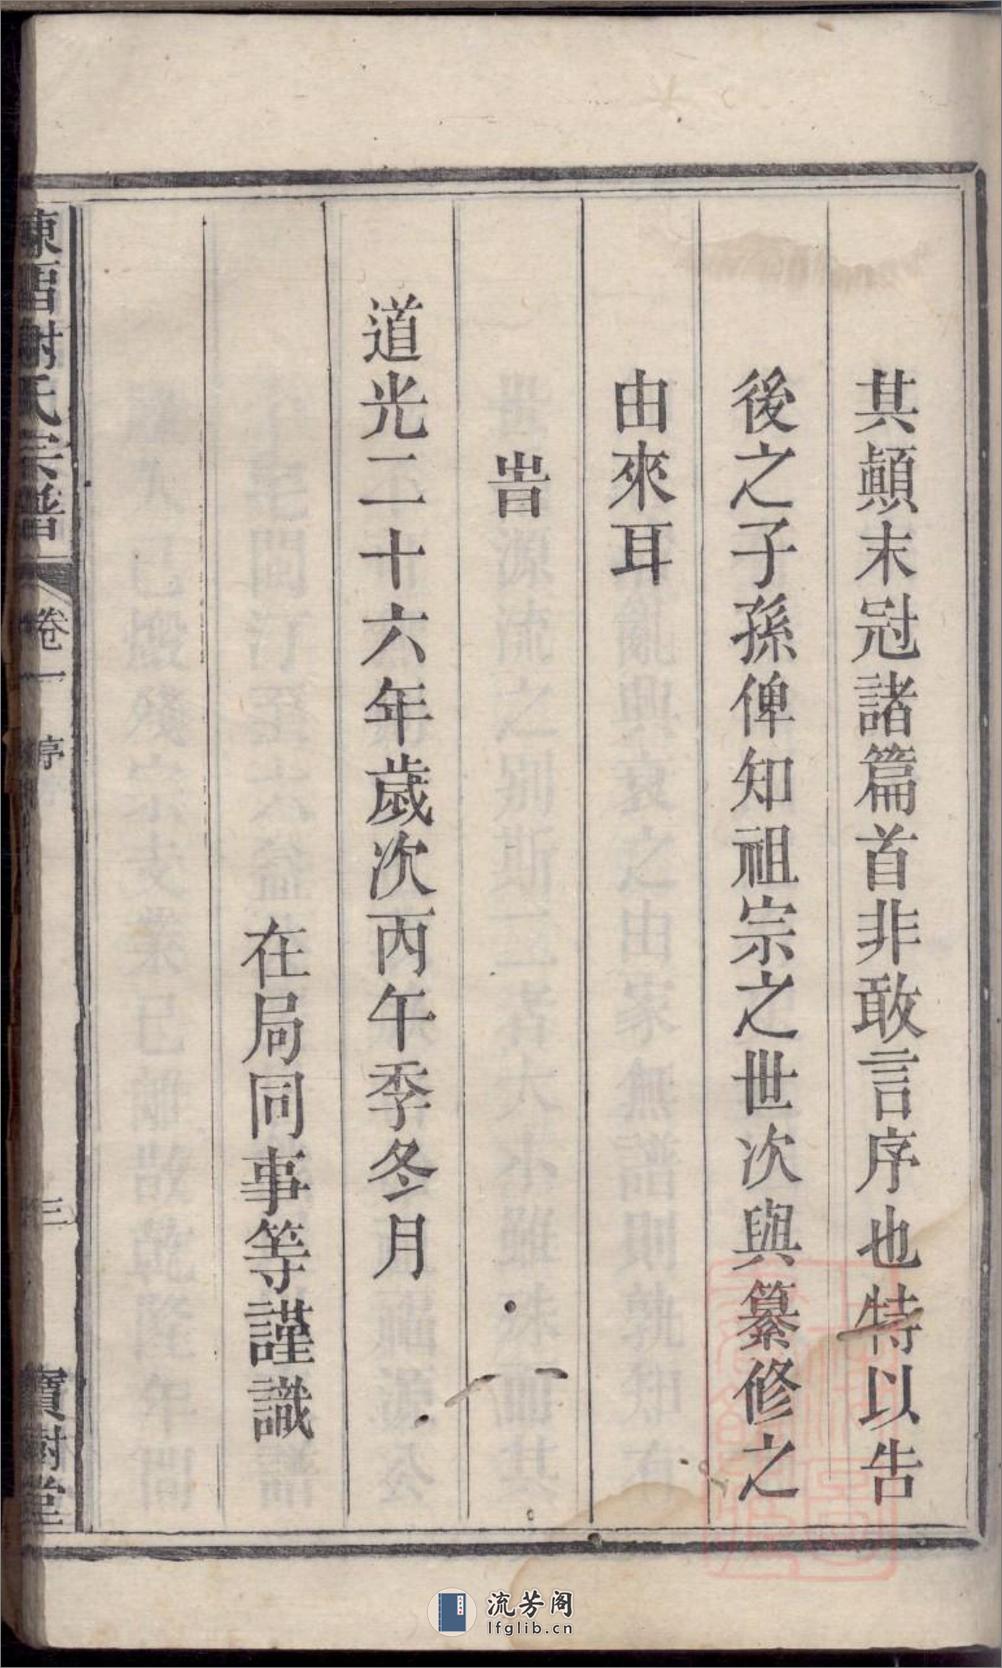 其顛末冠諸篇首非敢言序也特以告
後之子孫俾知祖宗之世次與纂修之
由來耳
旹
道光二十六年歲次丙午季冬月
在局同事等謹識
陳留謝氏宗譜
卷一
序
三
寶樹堂
流芳阁
lfglib.cn